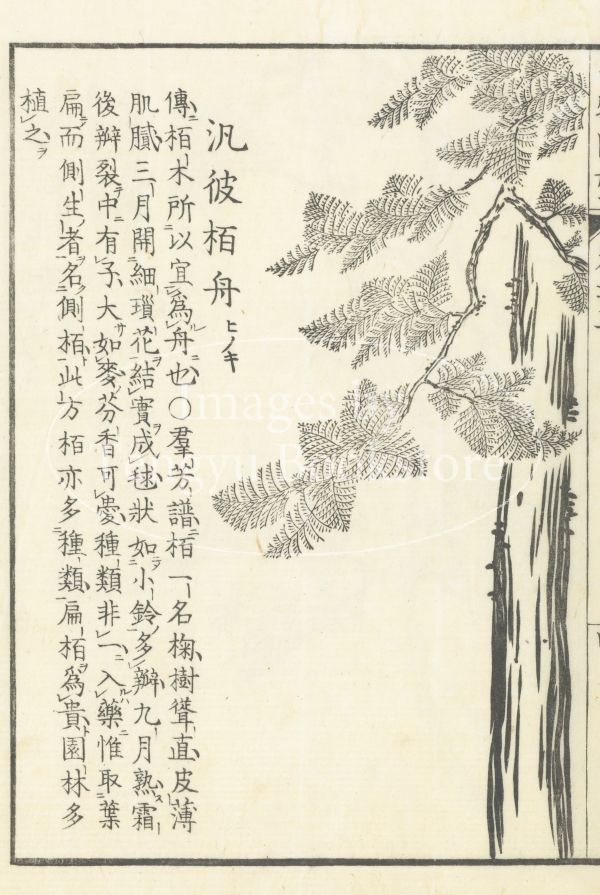 汎彼栢舟 ヒノキ
傳栢木所以宜為舟也〇羣芳譜栢一名椈樹聳直皮薄
肌膩三月開細瑣花結實成毬狀如小鈴多瓣九月熟霜
後瓣裂中有子大如麥芬香可愛種類非一入藥惟取葉
扁而側生者名側栢此方栢亦多種類扁栢為貴園林多
植之
Images by
Tongyu Bookstore